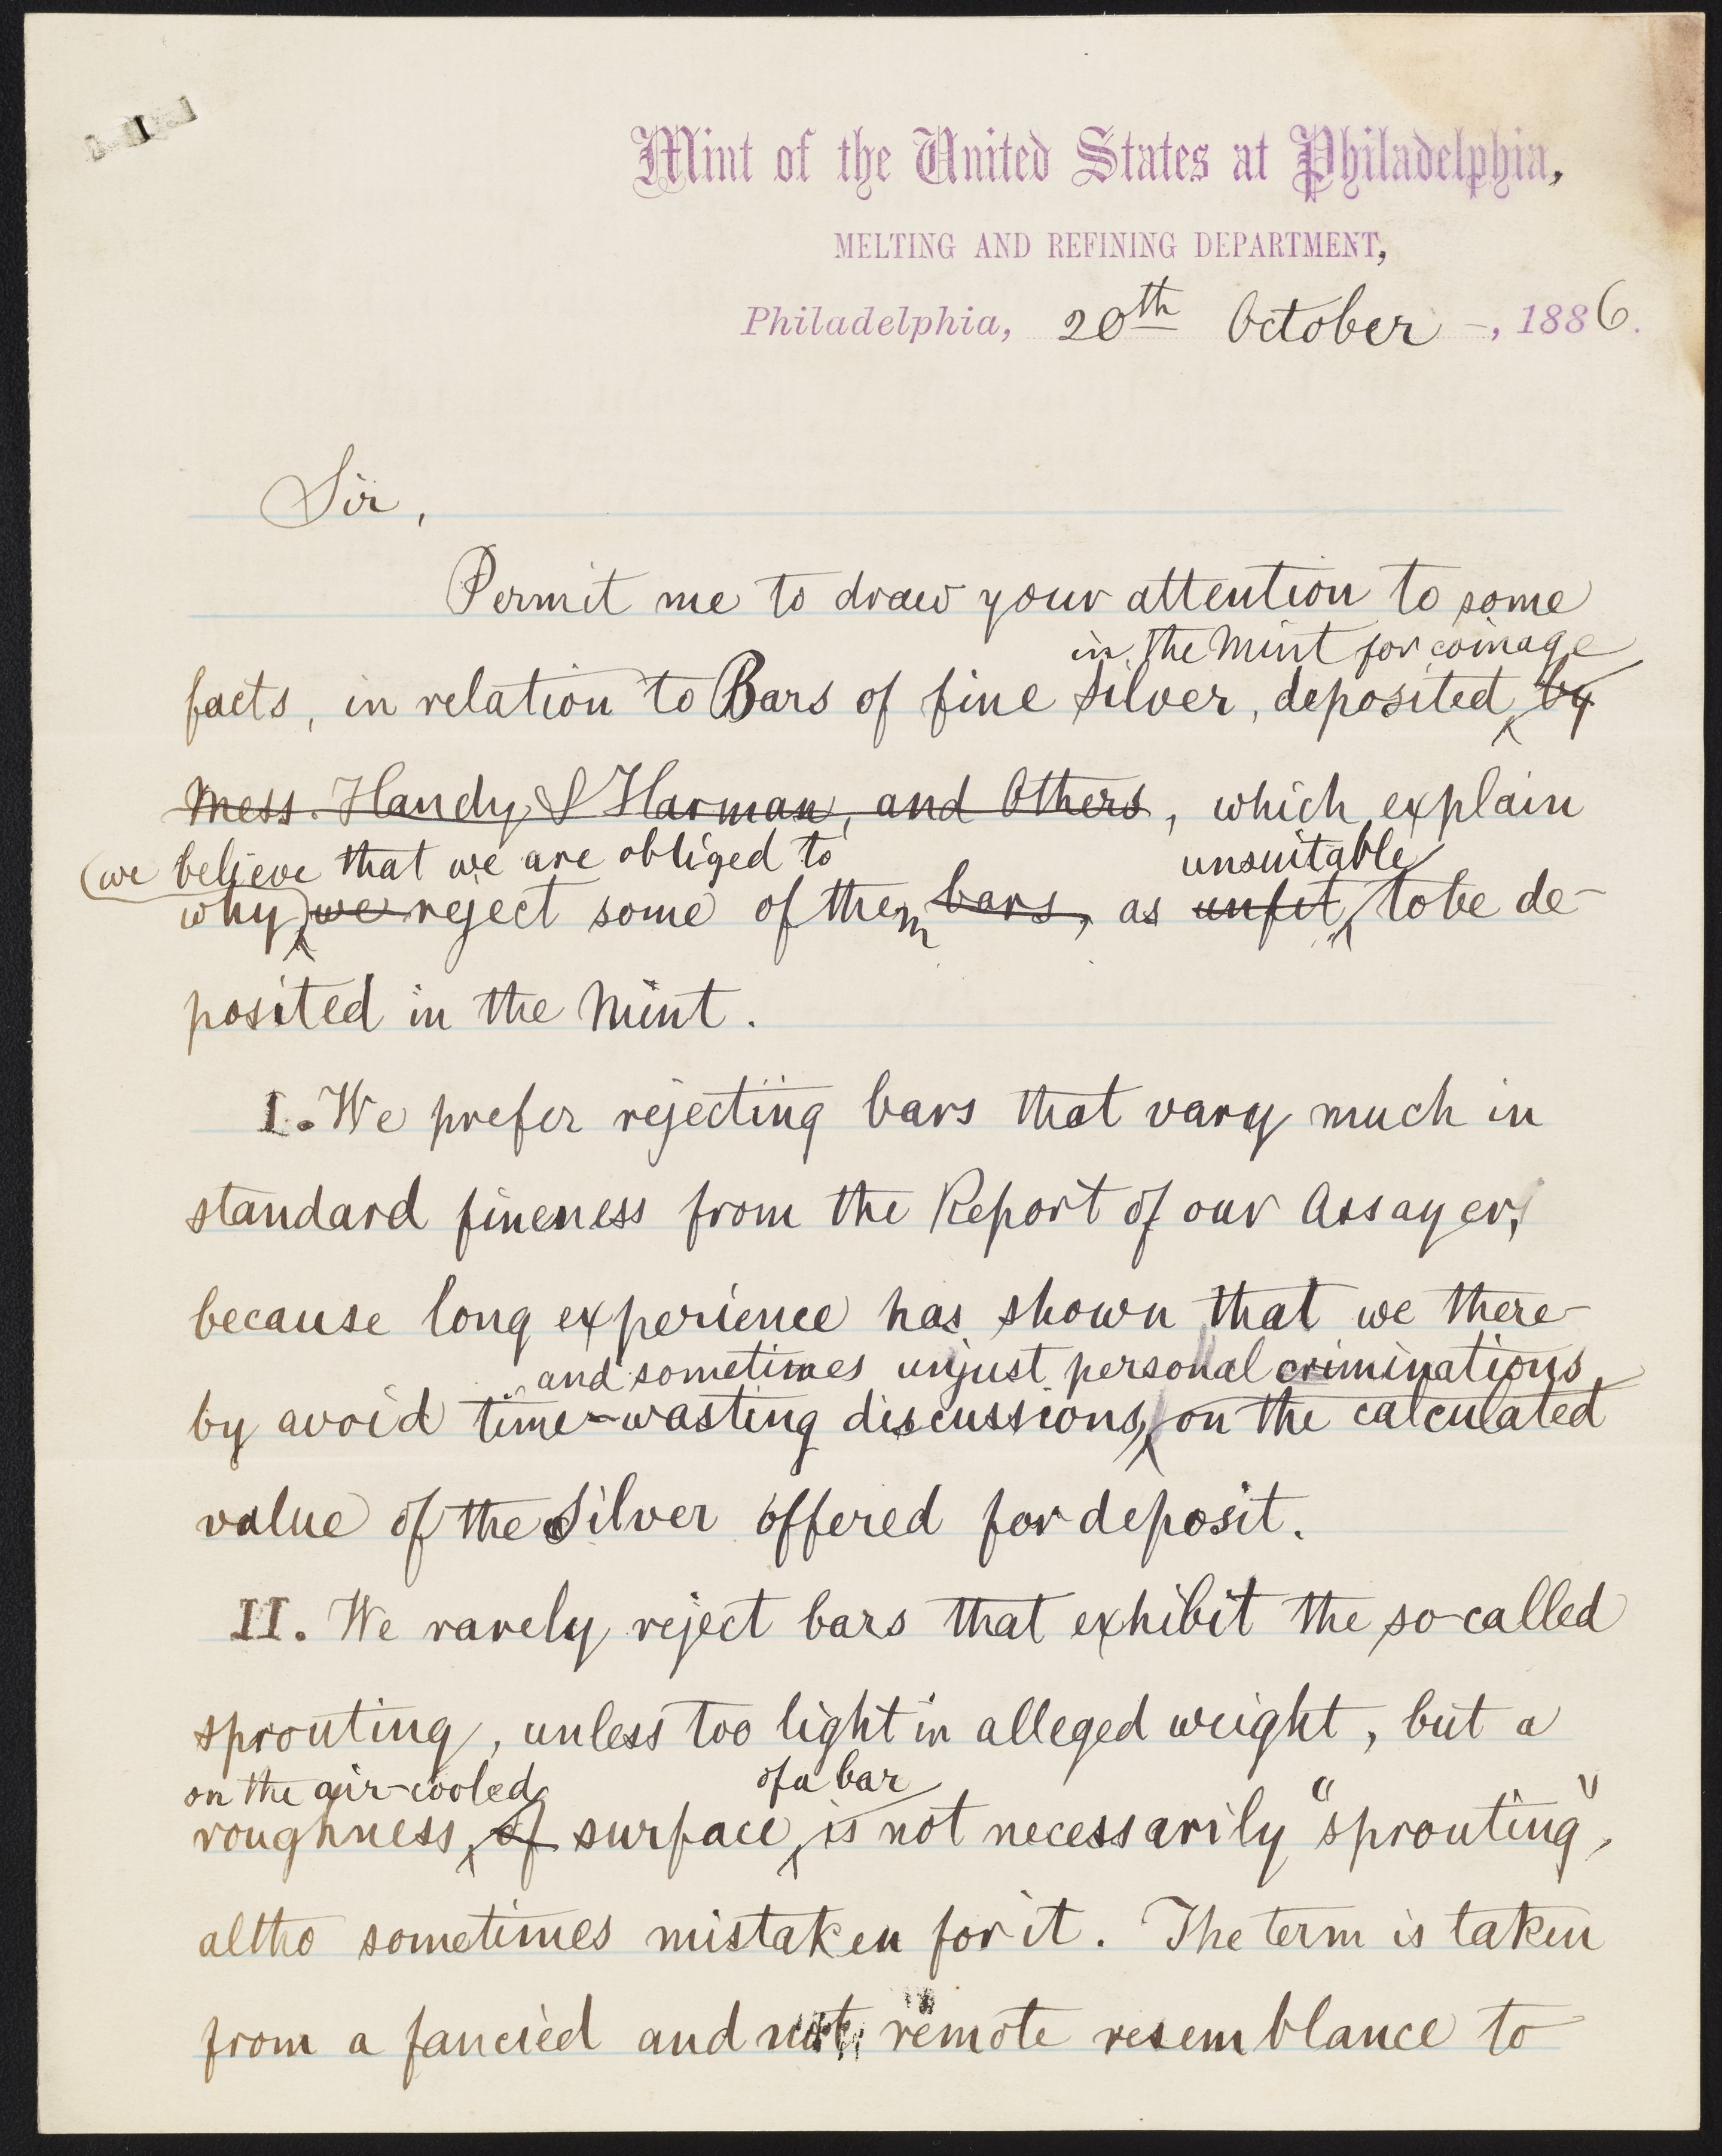 Mint of the United States at Philadelphia,
MELTING AND REFINING DEPARTMENT,
Philadelphia, 20th October –, 1886.
Sir,
Permit me to draw your attention to some
in the Mint for coinage
facts, in relation to Bars of fine Silver, deposited by
Mess. Handy & Harman, and Others, which explain
(we believe that we are obliged to unsuitable
why) we reject some of them bars, as unfit, to be de-
posited in the Mint.
I. We prefer rejecting bars that vary much in
standard fineness from the Report of our Assayer,
because long experience has shown that we there-
and sometimes unjust personal criminations,
by avoid time-wasting discussions, on the calculated
value of the Silver offered for deposit.
II. We rarely reject bars that exhibit the so-called
sprouting, unless too light in alleged weight, but a
on the air-cooled of a bar
roughness, of surface, is not necessarily "sprouting",
altho sometimes mistaken for it. The term is taken
from a fancied and not remote resemblance to